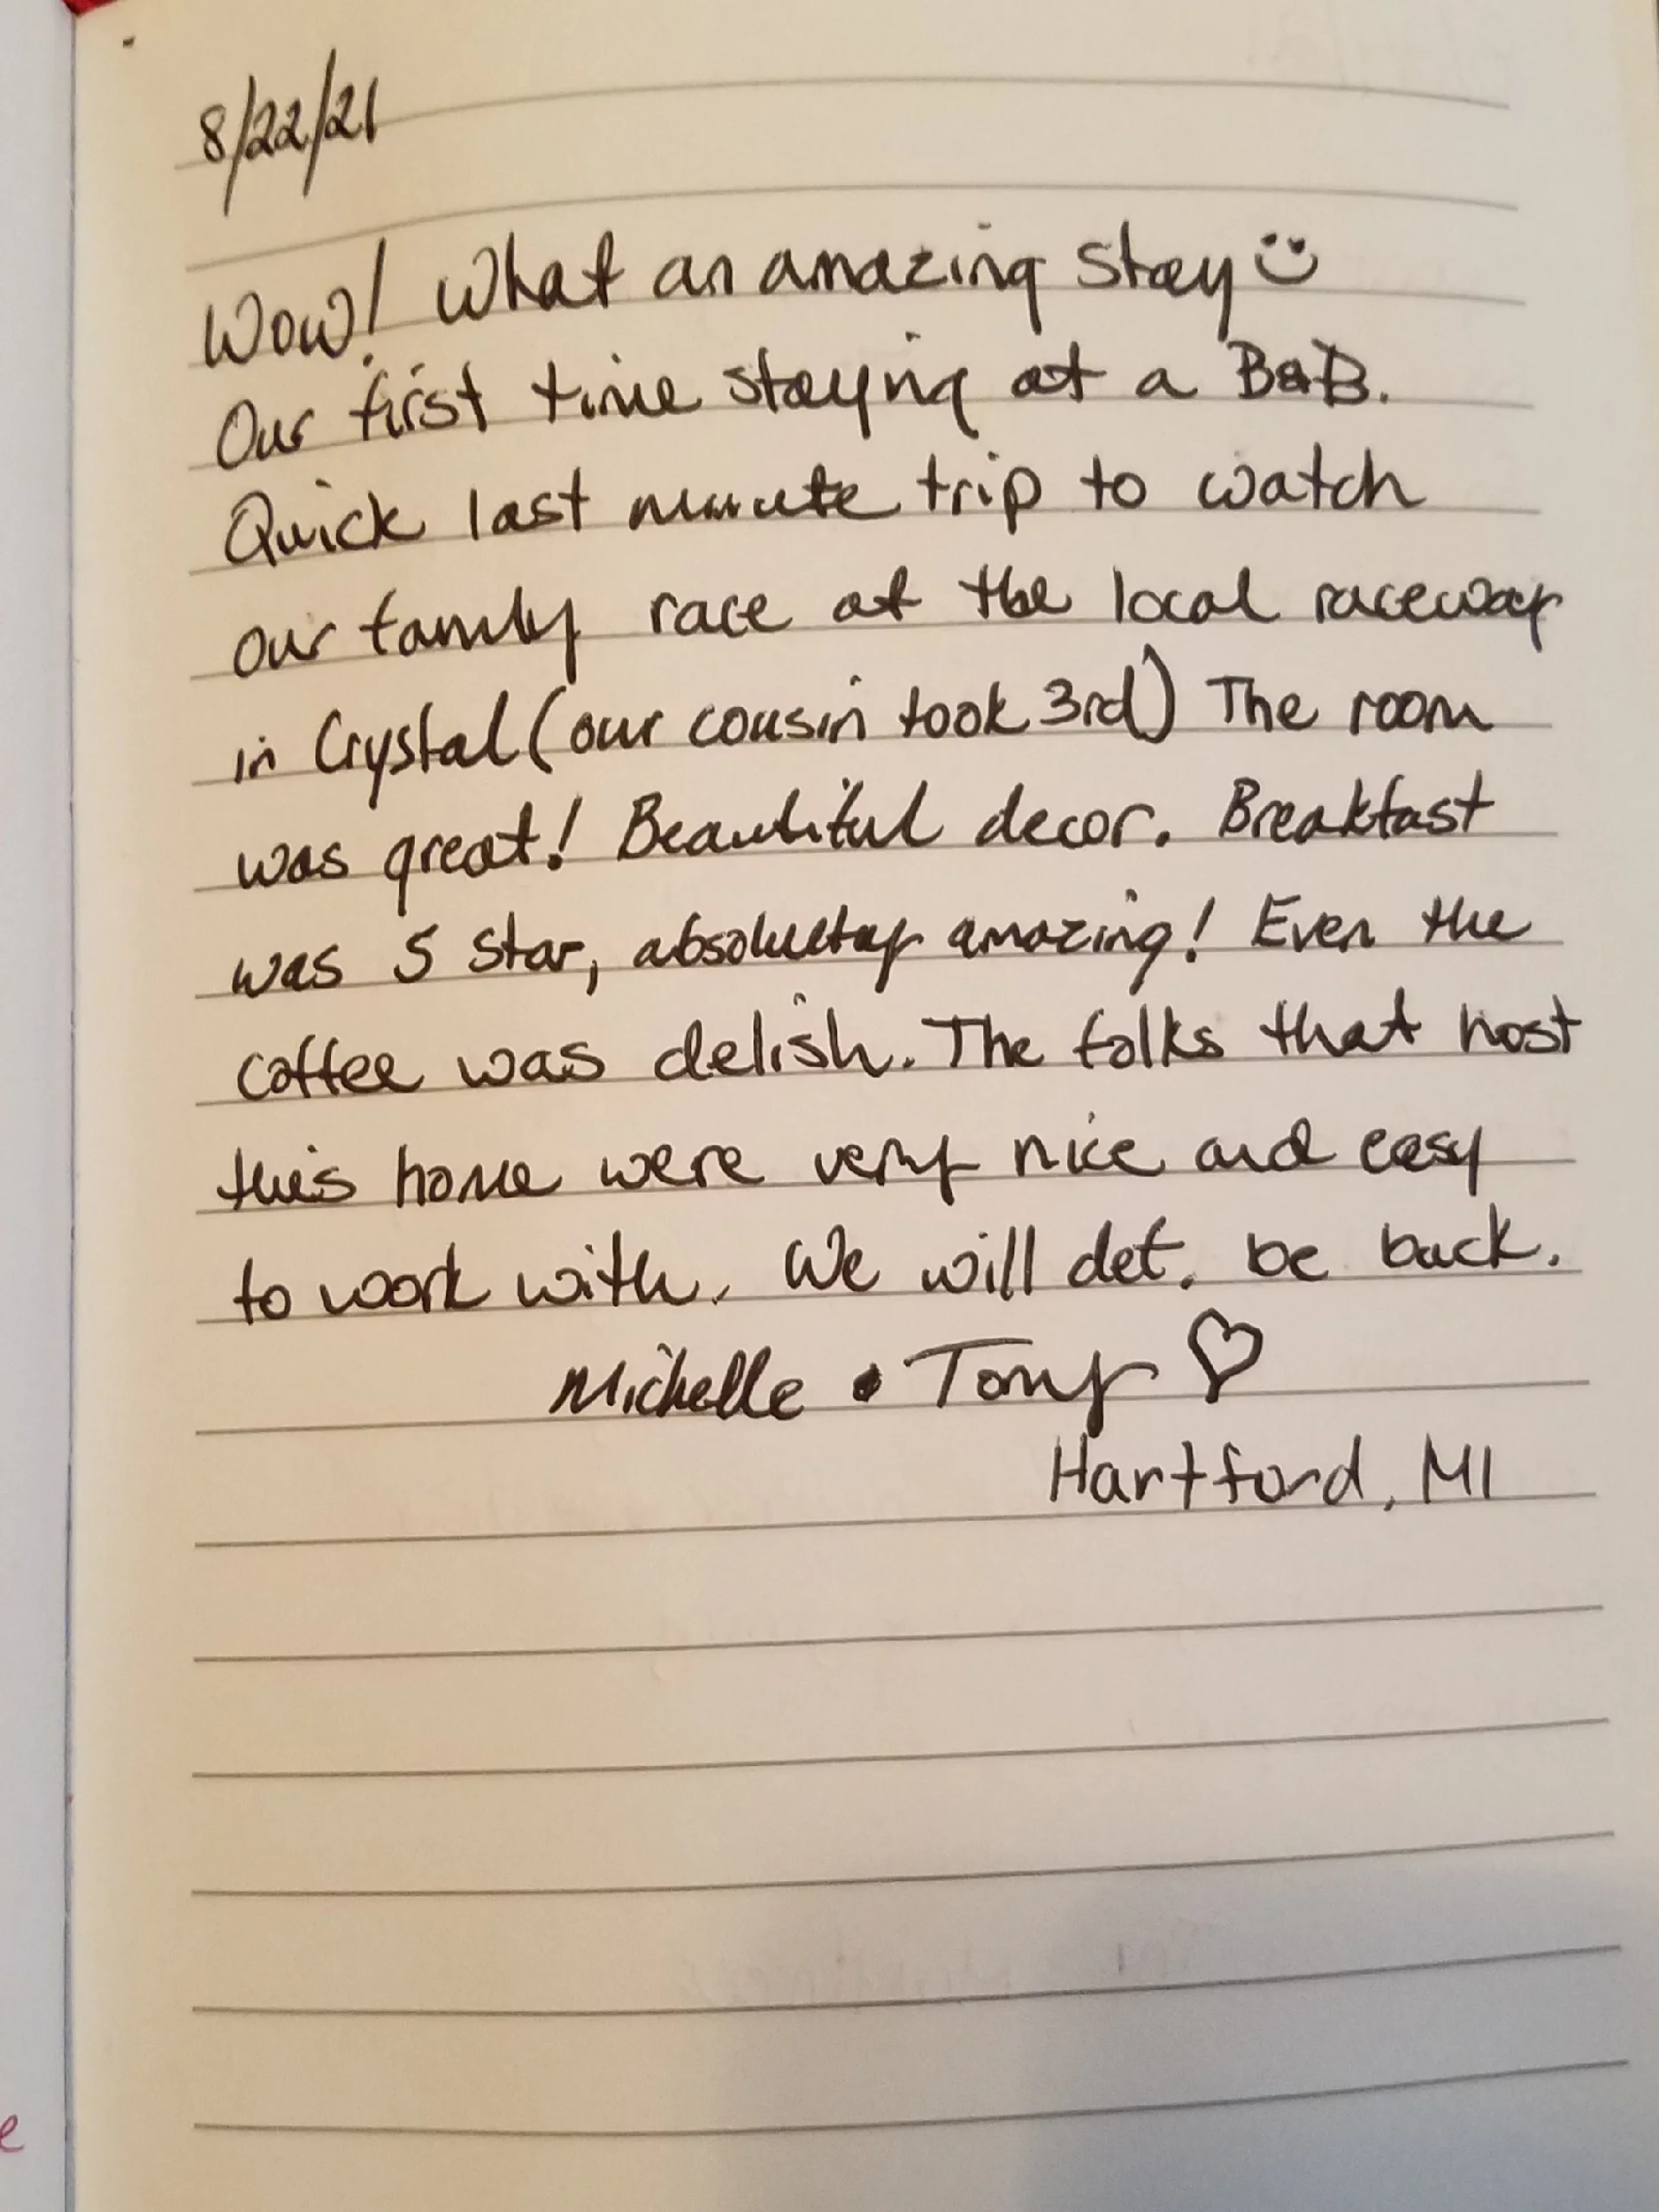 8/22/21
Wow! What an amazing stay
Our first time staying at a B&B.
Quick last minute trip to watch
our family race at the local raceway
in Crystal (our cousin took 3rd) The room
was great! Beautiful decor. Breakfast
was 5 star, absolutely amazing! Even the
coffee was delish. The folks that host
this home were very nice and easy
to work with. We will def. be back.
Michelle • Tony ♡
Hartford, MI